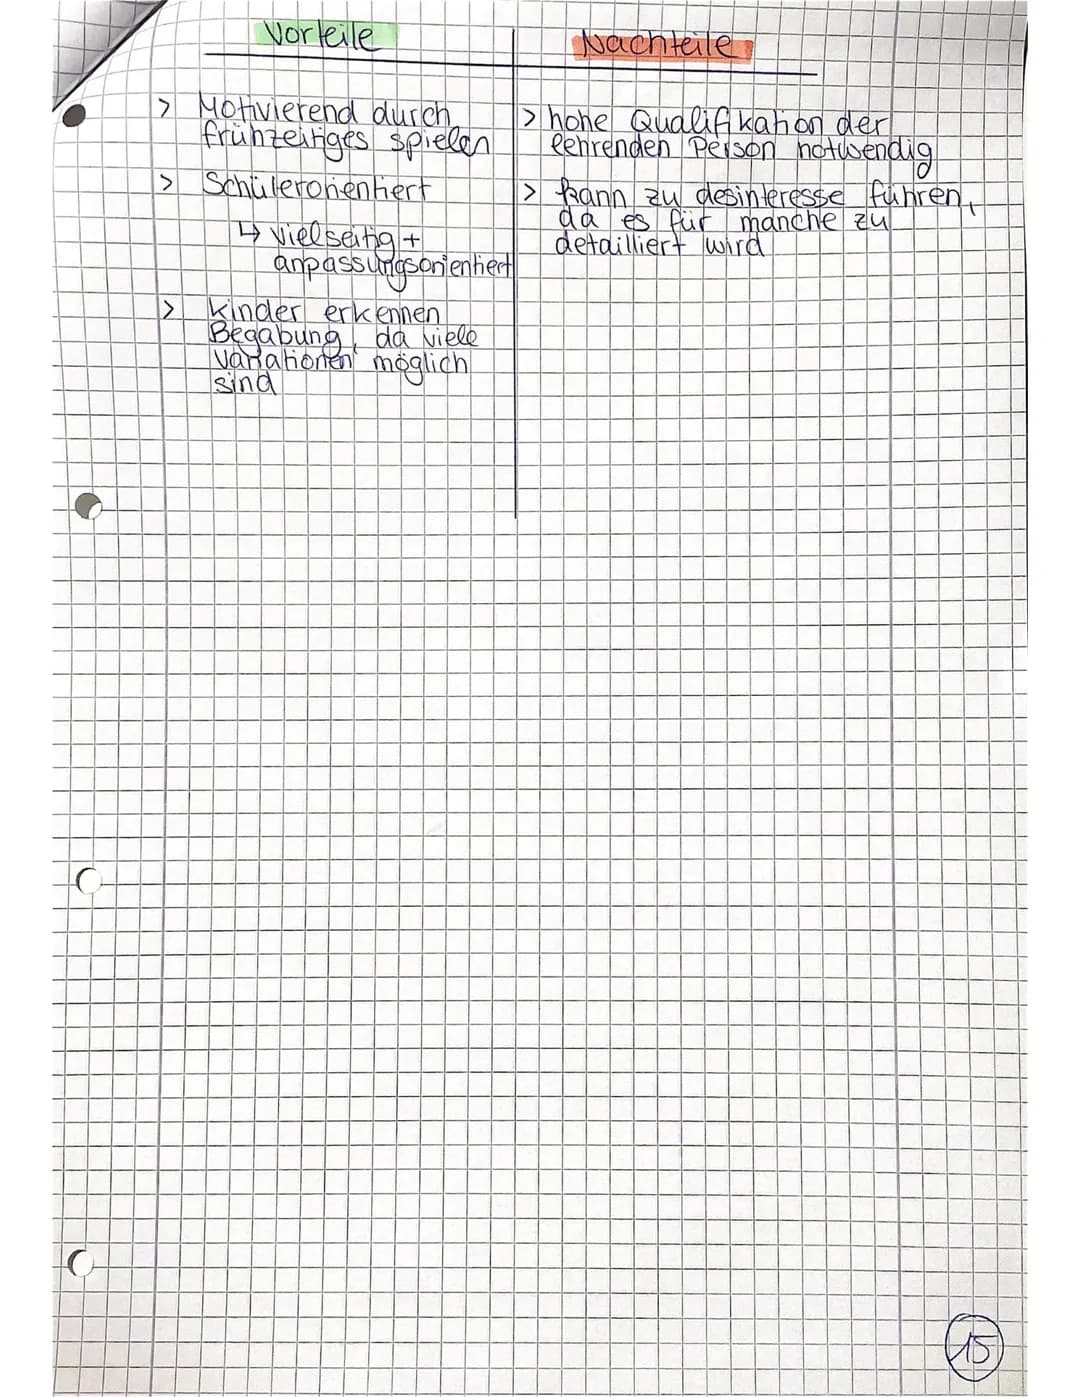 Vorteile
> Motivierend durch
frühzeitiges spielen
> Schülerorientiert
↳ vielseitig +
anpassungsorientiert
> kinder erkennen
Begabung, da viele
variationen möglich
sind
Nachteile
> hohe Qualifikation der
lehrenden Person notwendig
> kann zu desinteresse führen,
da es für manche zu
detailliert wird
15